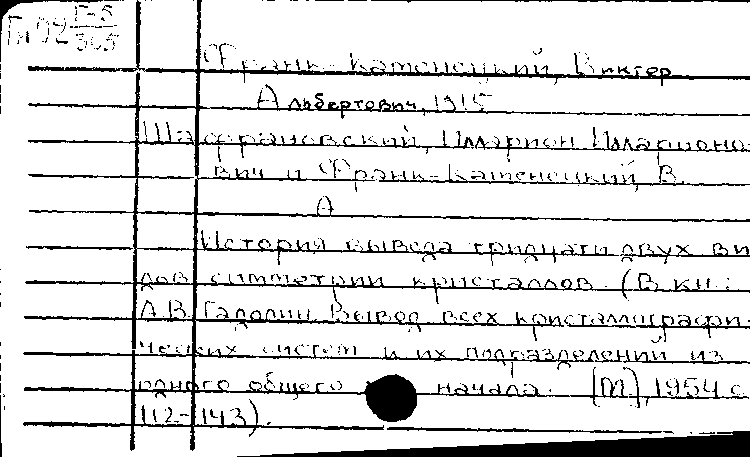 Гл 02 Г-5
365
Франк-Каменецкий, Виктер
Альбертович, 1915
Шафрановский, Илларион Илларионо-
вич и Франк-Каменецкий, В.
А
История вывода тридцати двух ви
дов симметрии кристаллов. (В кн.:
А.В. Гадолин Вывод всех кристаллографи-
ческих систем и их подразделений из
одного общего начала. [М], 1954 с
112-143).